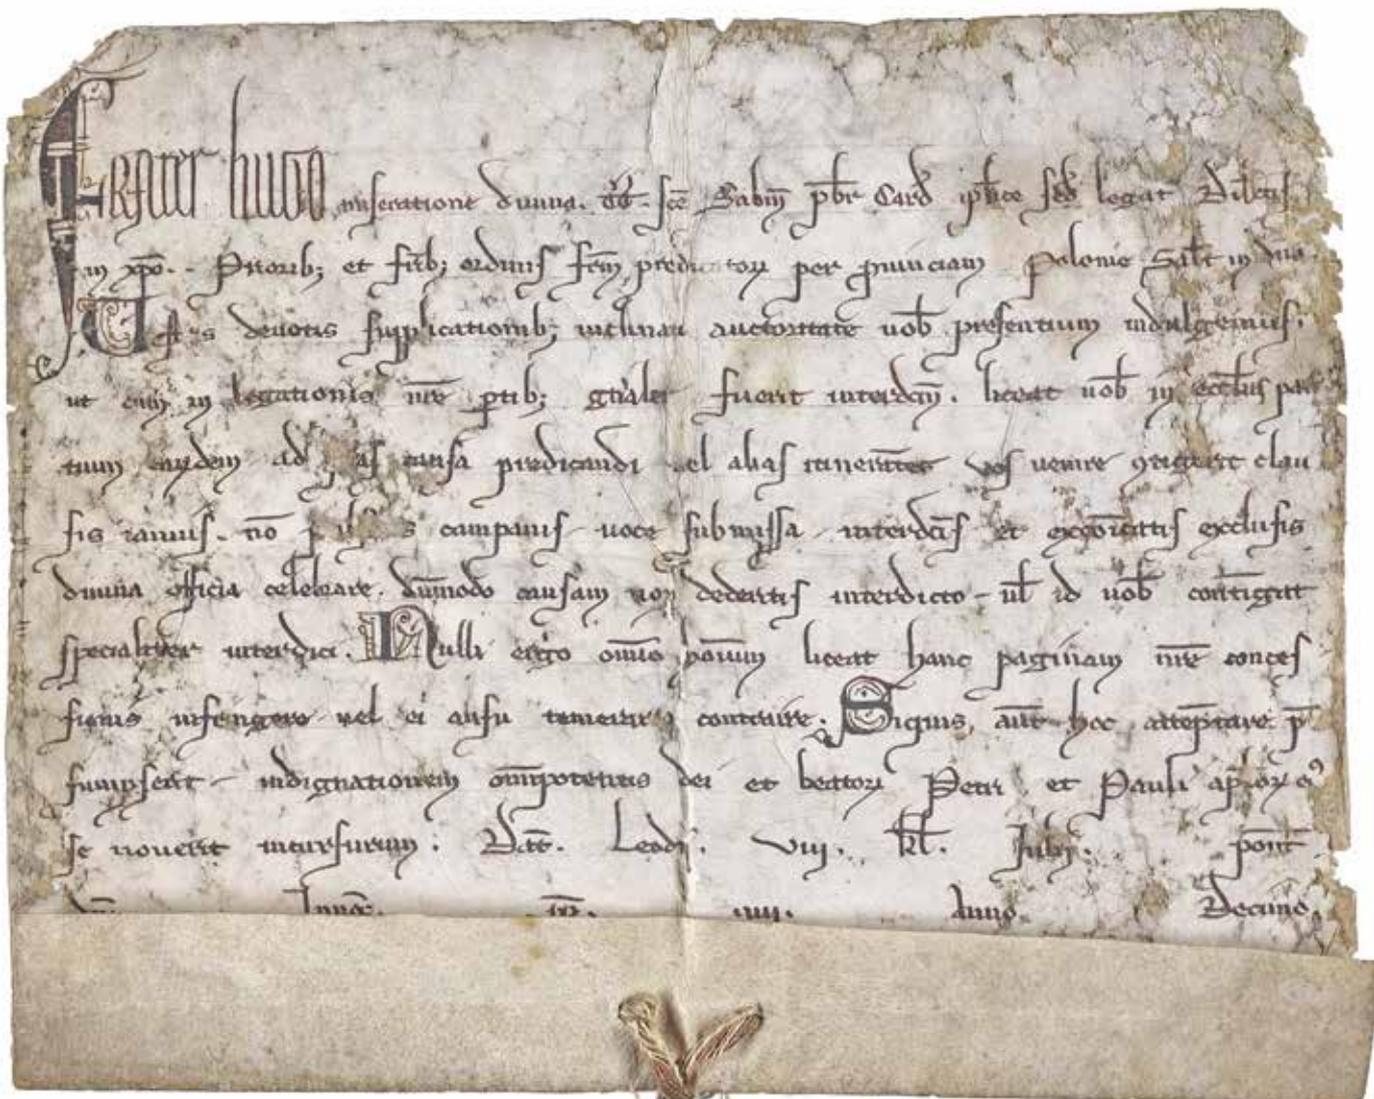 Frater hugo miseratione diuina. tt̄. sc̄e Sabiñ pb̄r Card ap̄lice sed̄ legat̄ Dilc̄is
in xp̄o. . Priorib; et fr̄ib; ordinis fr̄m predicatoꝝ per ꝓuinciam Polonie Sal̄t in dño.
Vestris deuotis supplicationib; inclinati auctoritate uob̄ presentium indulgemus.
ut cum in legationis nr̄e ꝑtib; gn̄al̓r fuerit interdc̄m. liceat uob̄ in ecc̄liis par
tium earūdem ad quas causa predicandi uel alias itinerātes uos uenire ꝯtigerit clau
sis ianuis. nō pulsatis campanis uoce submissa interdc̄is et exco̅icatis exclusis
diuina officia celebrare. dūmodo causam non dederitis interdicto ul̄ id uob̄ contigat
specialiter interdici. Nulli ergo omnio ho̅inum liceat hanc paginam nr̄e conces
sionis infringere uel ei ausu temerario contraire. Siquis aut̄ hoc attēptare p̄
sumpserit indignationem omīpotentis dei et beatoꝝ Petri et Pauli ap̄loꝝ ei᷒
se nouerit incursurum. Dat̄. Leodī. viij. kl̄. Julij. pont̄
Innoc̄. pp̄. iiij. Anno Decimo.